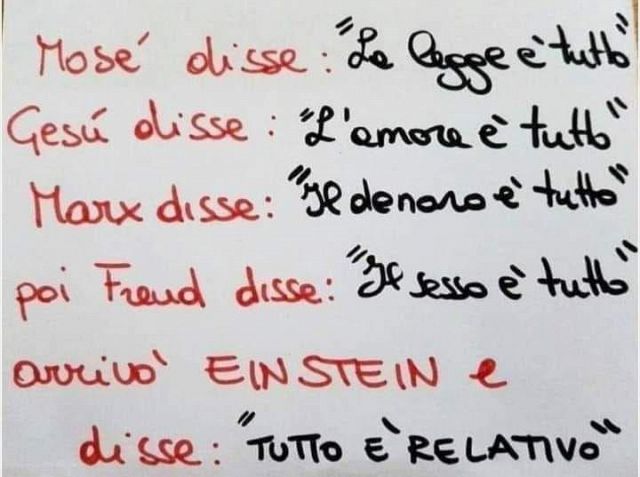 Mosé disse: "La legge è tutto"
Gesú disse: "L'amore è tutto"
Marx disse: "Il denaro è tutto"
poi Freud disse: "Il sesso è tutto"
arrivò EINSTEIN e
disse: "TUTTO E' RELATIVO"